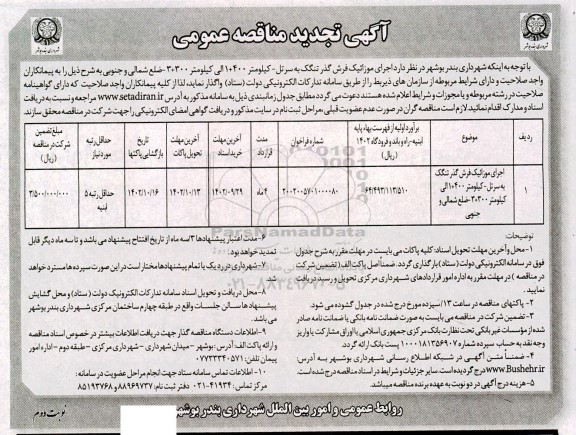 آگهی تجدید مناقصه عمومی
با توجه به اینکه شهرداری بندر بوشهر در نظر دارد اجرای موزائیک فرش گذر تنگک به سرتل - کیلومتر ۱۰۴۰۰ الی کیلومتر ۳۰۳۰۰ - ضلع شمالی و جنوبی به شرح ذیل را به پیمانکاران
واجد صلاحیت و دارای شرایط مربوطه از سازمان های ذیربط را از طریق سامانه تدارکات الکترونیکی دولت (ستاد) واگذار نماید، لذا از کلیه پیمانکاران واجد صلاحیت که دارای گواهینامه
صلاحیت در رشته مربوطه و یا مجوزات و شرایط اعلام شده هستند دعوت می گردد مطابق جدول زمانبندی ذیل به سامانه مذکور به آدرس www.setadiran.ir مراجعه و نسبت به دریافت
اسناد و مدارک اقدام نمائید. لازم است مناقصه گران در صورت عدم عضویت قبلی، مراحل ثبت نام در سایت مذکور و دریافت گواهی امضای الکترونیکی را جهت شرکت در مناقصه محقق سازند.
ردیف | موضوع | برآورد اولیه از فهرست بهاء پایه ابنیه - راه و باند و فرودگاه ۱۴۰۲ (ریال) | شماره فراخوان | مدت قرارداد | آخرین مهلت خرید اسناد | آخرین مهلت تحویل پاکات | تاریخ بازگشایی پاکتها | حداقل رتبه مورد نیاز | مبلغ تضمین شرکت در مناقصه (ریال)
۱ | اجرای موزائیک فرش گذر تنگک به سرتل - کیلومتر ۱۰۴۰۰ الی کیلومتر ۳۰۳۰۰ - ضلع شمالی و جنوبی | ۶۴/۴۹۳/۱۱۳/۵۱۰ | ۲۰۰۲۰۰۵۷۰۱۰۰۰۰۸۰ | ۴ ماه | ۱۴۰۲/۰۹/۲۹ | ۱۴۰۲/۱۰/۱۳ | ۱۴۰۲/۱۰/۱۶ | حداقل رتبه ۵ ابنیه | ۳/۵۰۰/۰۰۰/۰۰۰
توضیحات:
۱- محل و آخرین مهلت تحویل اسناد: کلیه پاکات می بایست در مهلت مقرر به شرح جدول
فوق در سامانه الکترونیکی دولت (ستاد) بارگذاری گردد. ضمناً اصل پاکت الف (تضمین شرکت
در مناقصه) در مهلت مقرر به اداره امور قراردادهای شهرداری مرکزی تحویل و رسید دریافت
نمایید.
۲- پاکتهای مناقصه در ساعت ۱۳/سیزده مورخ درج شده در جدول گشوده می شود.
۳- تضمین شرکت در مناقصه می بایست به صورت ضمانت نامه بانکی یا ضمانت نامه صادر
شده از مؤسسات غیر بانکی تحت نظارت بانک مرکزی جمهوری اسلامی یا اوراق مشارکت یا واریز
وجه نقد به حساب سپرده ۱۰۰۰۱۸۱۳۵۶۹۰۷ پست بانک ارائه گردد.
۴- ضمناً متن آگهی در شبکه اطلاع رسانی شهرداری بوشهر به آدرس:
www.Bushehr.ir درج گردیده است. سایر جزئیات و شرایط در اسناد مناقصه درج شده است.
۵- هزینه درج آگهی در دو نوبت به عهده برنده مناقصه میباشد.
۶- مدت اعتبار پیشنهادها ۳/سه ماه از تاریخ افتتاح پیشنهاد می باشد و تا سه ماه دیگر قابل
تمدید خواهد بود.
۷- شهرداری در رد یک یا تمام پیشنهادها مختار است در این صورت سپرده ها مسترد خواهد
شد.
۸- محل دریافت و تحویل اسناد سامانه تدارکات الکترونیک دولت (ستاد) و محل گشایش
پیشنهادها سالن جلسات واقع در طبقه چهارم ساختمان مرکزی شهرداری بندر بوشهر
می باشد.
۹- اطلاعات دستگاه مناقصه گذار جهت دریافت اطلاعات بیشتر در خصوص اسناد مناقصه
و ارائه پاکت الف: آدرس: بوشهر - میدان شهرداری - شهرداری مرکزی - طبقه دوم - اداره امور
پیمان تلفن: ۰۷۷۳۳۳۴۰۵۷۱
۱۰- اطلاعات تماس سامانه ستاد جهت انجام مراحل عضویت در سامانه:
مرکز تماس: ۴۱۹۳۴-۰۲۱ دفتر ثبت نام: ۸۸۹۶۹۷۳۷ و ۸۵۱۹۳۷۶۸
روابط عمومی و امور بین الملل شهرداری بندر بوشهر
نوبت دوم